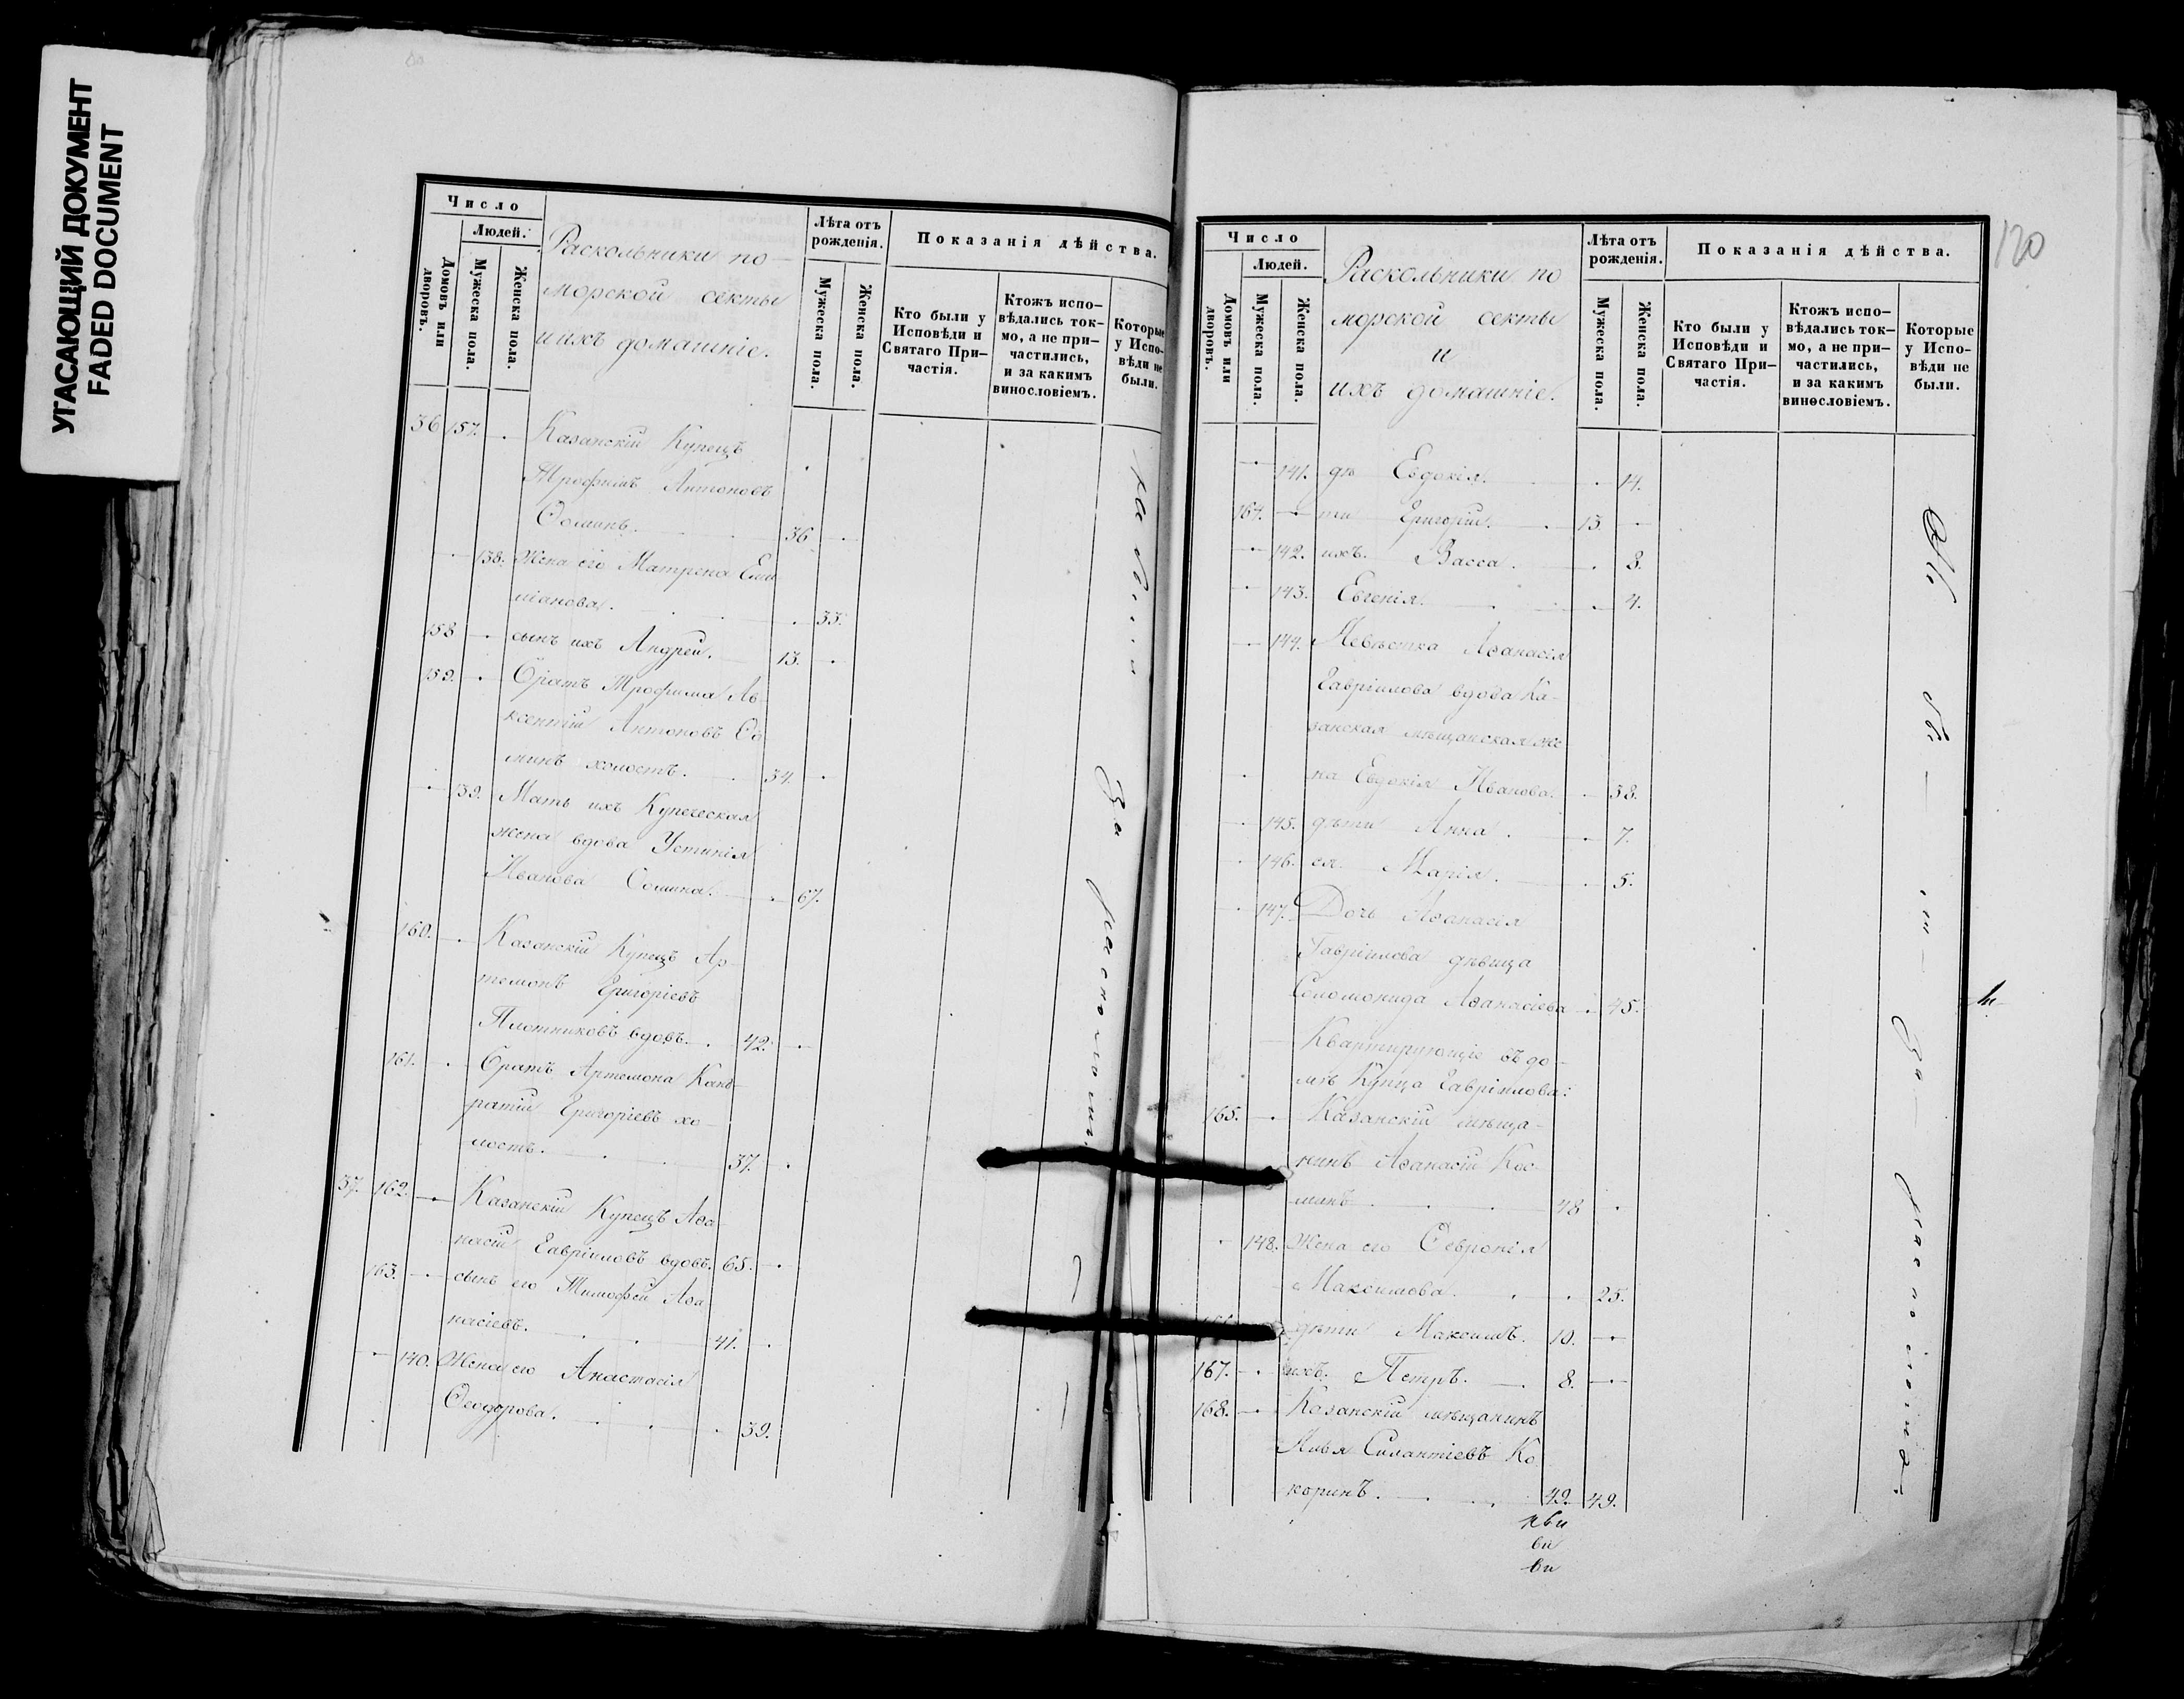 УГАСАЮЩИЙ ДОКУМЕНТ
FADED DOCUMENT
Число
Людей.
Домовъ или дворовъ.
Мужеска пола.
Женска пола.
Раскольники по-
морской секты
и ихъ домашніе.
Лѣта отъ рожденія.
Мужеска пола.
Женска пола.
Показанія дѣйства.
Кто были у Исповѣди и Святаго При-частія.
Ктожъ испо-вѣдались ток-мо, а не при-частились, и за какимъ винословіемъ.
Которые у Испо-вѣди не были.
36 157. Казанскій Купецъ
Трофимъ Антоновъ
Ѳоминъ. 36
138. Жена его Матрена Еми
ліанова. 33.
158 сынъ ихъ Андрей. 13.
159. Братъ Трофима Ав-
ксентій Антоновъ Ѳо
минъ холостъ. 34.
139. Мать ихъ Купеческая
жена вдова Устинія
Иванова Ѳомина. 67.
160. Казанскій Купецъ Ар-
темонъ Григоріевъ
Плотниковъ вдовъ. 42.
161. Братъ Артемона Кон-
ратій Григоріевъ хо-
лостъ. 37.
37. 162. Казанскій Купецъ Аѳа-
насій Гавріиловъ вдовъ. 65.
163. сынъ его Тимофей Аѳа
насіевъ. 41.
140. Жена его Анастасія
Ѳеодорова. 39.
за расколомъ
120
Число
Людей.
Домовъ или дворовъ.
Мужеска пола.
Женска пола.
Раскольники по
морской секты
и
ихъ домашніе.
Лѣта отъ рожденія.
Мужеска пола.
Женска пола.
Показанія дѣйства.
Кто были у Исповѣди и Святаго При-частія.
Ктожъ испо-вѣдались ток-мо, а не при-частились, и за какимъ винословіемъ.
Которые у Испо-вѣди не были.
141. дѣ Евдокія. 14.
164. ти Григорій. 13.
142. ихъ. Васса. 8.
143. Евгенія. 4.
144. Невѣстка Аѳанасія
Гавріилова вдова Ка-
занская мѣщанская же
на Евдокія Иванова. 38.
145. дѣти Анна. 7.
146. ея Марія. 5.
147. Дочь Аѳанасія
Гавріилова дѣвица
Соломонида Аѳанасіева 45.
Квартирующіе въ до-
мѣ Купца Гавріилова:
165. Казанскій мѣща-
нинъ Аѳанасій Кос-
минъ 48
148. Жена его Ѳевронія
Максимова. 25.
дѣти Максимъ. 10.
167. ихъ. Петръ. 8.
168. Казанскій мѣщанинъ
Илья Силантіевъ Ко
коринъ. 49. 49.